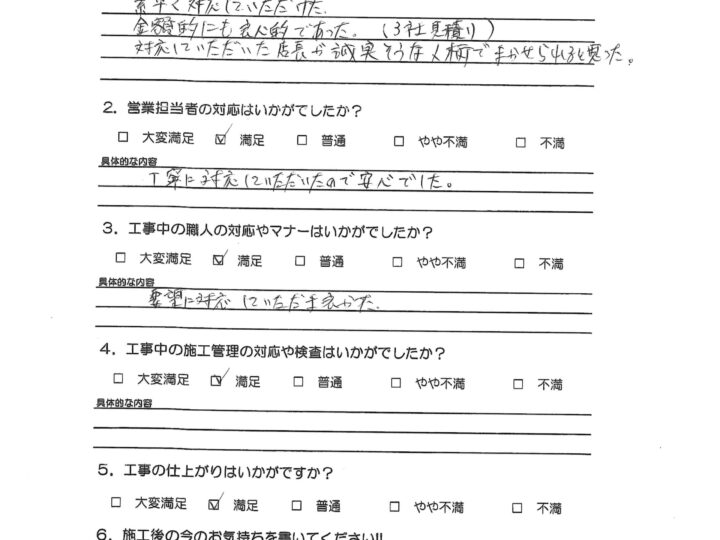 素早く対応していただけた.
金額的にも良心的であった。(3社見積り)
対応していただいた店長が誠実そうな人柄でまかせられると思った。
2. 営業担当者の対応はいかがでしたか?
□ 大変満足 ☑ 満足 □ 普通 □ やや不満 □ 不満
具体的な内容
丁寧に対応していただいたので安心でした。
3. 工事中の職人の対応やマナーはいかがでしたか?
□ 大変満足 ☑ 満足 □ 普通 □ やや不満 □ 不満
具体的な内容
要望に対応していただき良かた.
4. 工事中の施工管理の対応や検査はいかがでしたか?
□ 大変満足 ☑ 満足 □ 普通 □ やや不満 □ 不満
具体的な内容
5. 工事の仕上がりはいかがですか?
□ 大変満足 ☑ 満足 □ 普通 □ やや不満 □ 不満
6. 施工後の今のお気持ちを書いてください!!